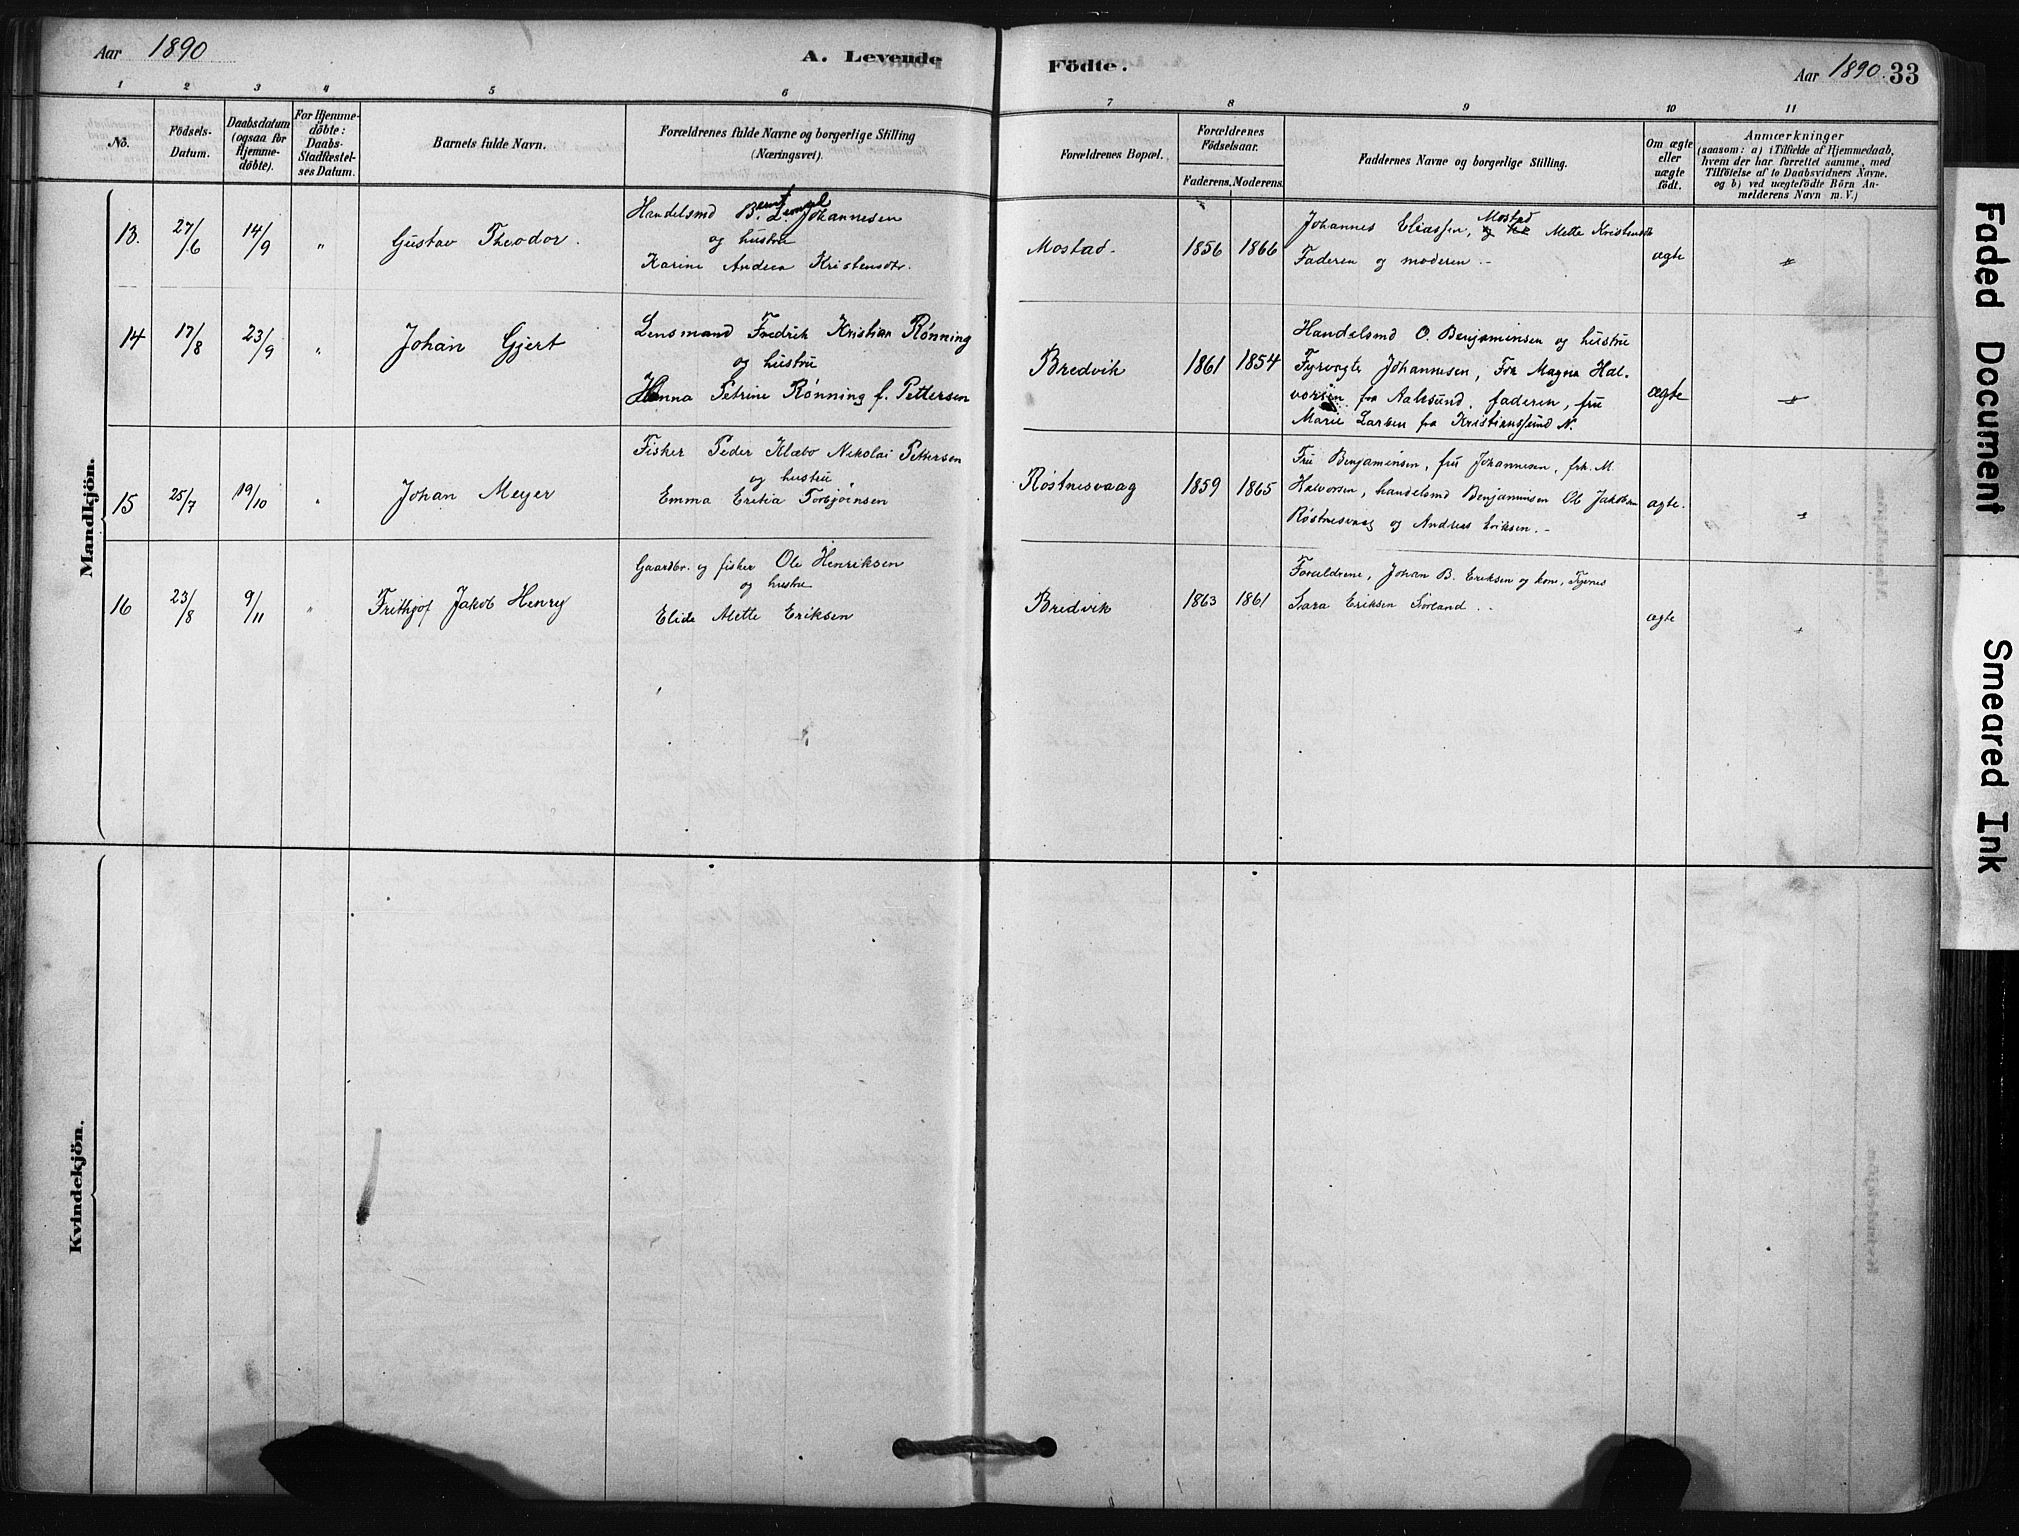 Aar 1890
A. Levende
Födte.
Aar 1890. 33
1 2 3 4 5 6 7 8 9 10 11
No.
Födsels-
Datum.
Daabsdatum
(ogsaa for
Hjemme-
döbte).
For Hjemme-
döbte:
Daabs-
Stadfæstel-
ses Datum.
Barnets fulde Navn.
Forældrenes fulde Navne og borgerlige Stilling
(Næringsvei).
Forældrenes Bopæl.
Forældrenes
Födselsaar.
Faderens. Moderens.
Faddernes Navne og borgerlige Stilling.
Om ægte
eller
uægte
födt.
Anmærkninger
(saasom: a) i Tilfælde af Hjemmedaab,
hvem der har forrettet samme, med
Tilföielse af to Daabsvidners Navne.
og b) ved uægtefödte Börn An-
melderens Navn m. V.)
Mandkjön.
13. 27/6 14/9 "
Gustav Theodor.
Handelsmd B. L. Johannesen
og hustru
Karine Andrea Kristensdtr.
Mostad. 1856 1866
Johannes Eliassen, Mostad Mette Kristensdtr
Faderen og moderen. -
ægte
"
14 17/8 23/9 "
Johan Gjert
Lensmand Fredrik Kristian Rønning
og hustru
Hanna Petrine Rønning f. Pettersen
Bredvik 1861 1854
Handelsmd O. Benjaminsen og hustru
Fyrvogte Johannesen, Frk Magna Hal-
vorsen fra Aalesund, faderen, fru
Marie Larsen fra Kristianssund N.
ægte
"
15 25/7 19/10 "
Johan Meyer
Fisker Peder Klæbo Nikolai Pettersen
og hustru
Emma Torbjørnsen
Røstnesvaag 1859 1865
Fru Benjaminsen, fru Johannesen, frk. M.
Halvorsen, handelsmd Benjaminsen Ole Jakobsen
Røstnesvaag og Andreas Eriksen. -
ægte.
"
16 23/8 9/11 "
Frithjof Jakob Henry
Gaardbr. og fisker Ole Henriksen
og hustru
Elide Alette Eriksen
Bredvik 1863 1861
Forældrene, Johan B. Eriksen og kone,
Sara Eriksen Sørland. -
ægte
"
Kvindekjön.
Faded Document
Smeared Ink